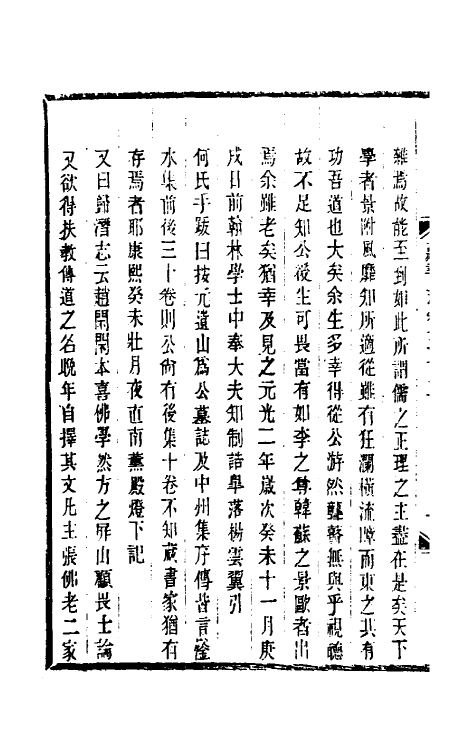 雜焉故能至到如此所謂儒之正理之主盡在是矣天下
學者景附風靡知所適從雖有狂瀾橫流障而東之其有
功吾道也大矣余生多幸得從公游然聾瞽無與乎視聽
故不足知公後生可畏當有如李之尊韓蘇之景歐者出
焉余雖老矣猶幸及見之元光二年歲次癸未十一月庚
戌日前翰林學士中奉大夫知制誥皐落楊雲翼引
何氏手跋曰按元遺山爲公墓誌及中州集序傳皆言滏
水集前後三十卷則公尚有後集十卷不知藏書家猶有
存焉者耶康熙癸未壯月夜直南薰殿燈下記
又曰歸潛志云趙閑閑本喜佛學然方之屏山顧畏士論
又欲得扶教傳道之名晚年自擇其文凡主張佛老二家